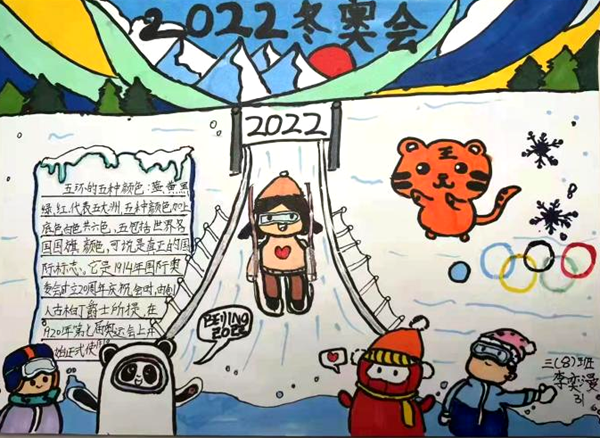 2022冬奥会
2022
五环的五种颜色:蓝黄黑
绿、红,代表五大洲,五种颜色加上
底色白色共六色,五包括世界各
国国旗颜色,可说是真正的国
际标志。它是1914年国际奥
委会成立20周年庆祝会时,由创
人古柏丁爵士所提,在
1920年第七届奥运会上开
始正式使用
BEIJING
2022
王
三(8)班
李奕漫
31